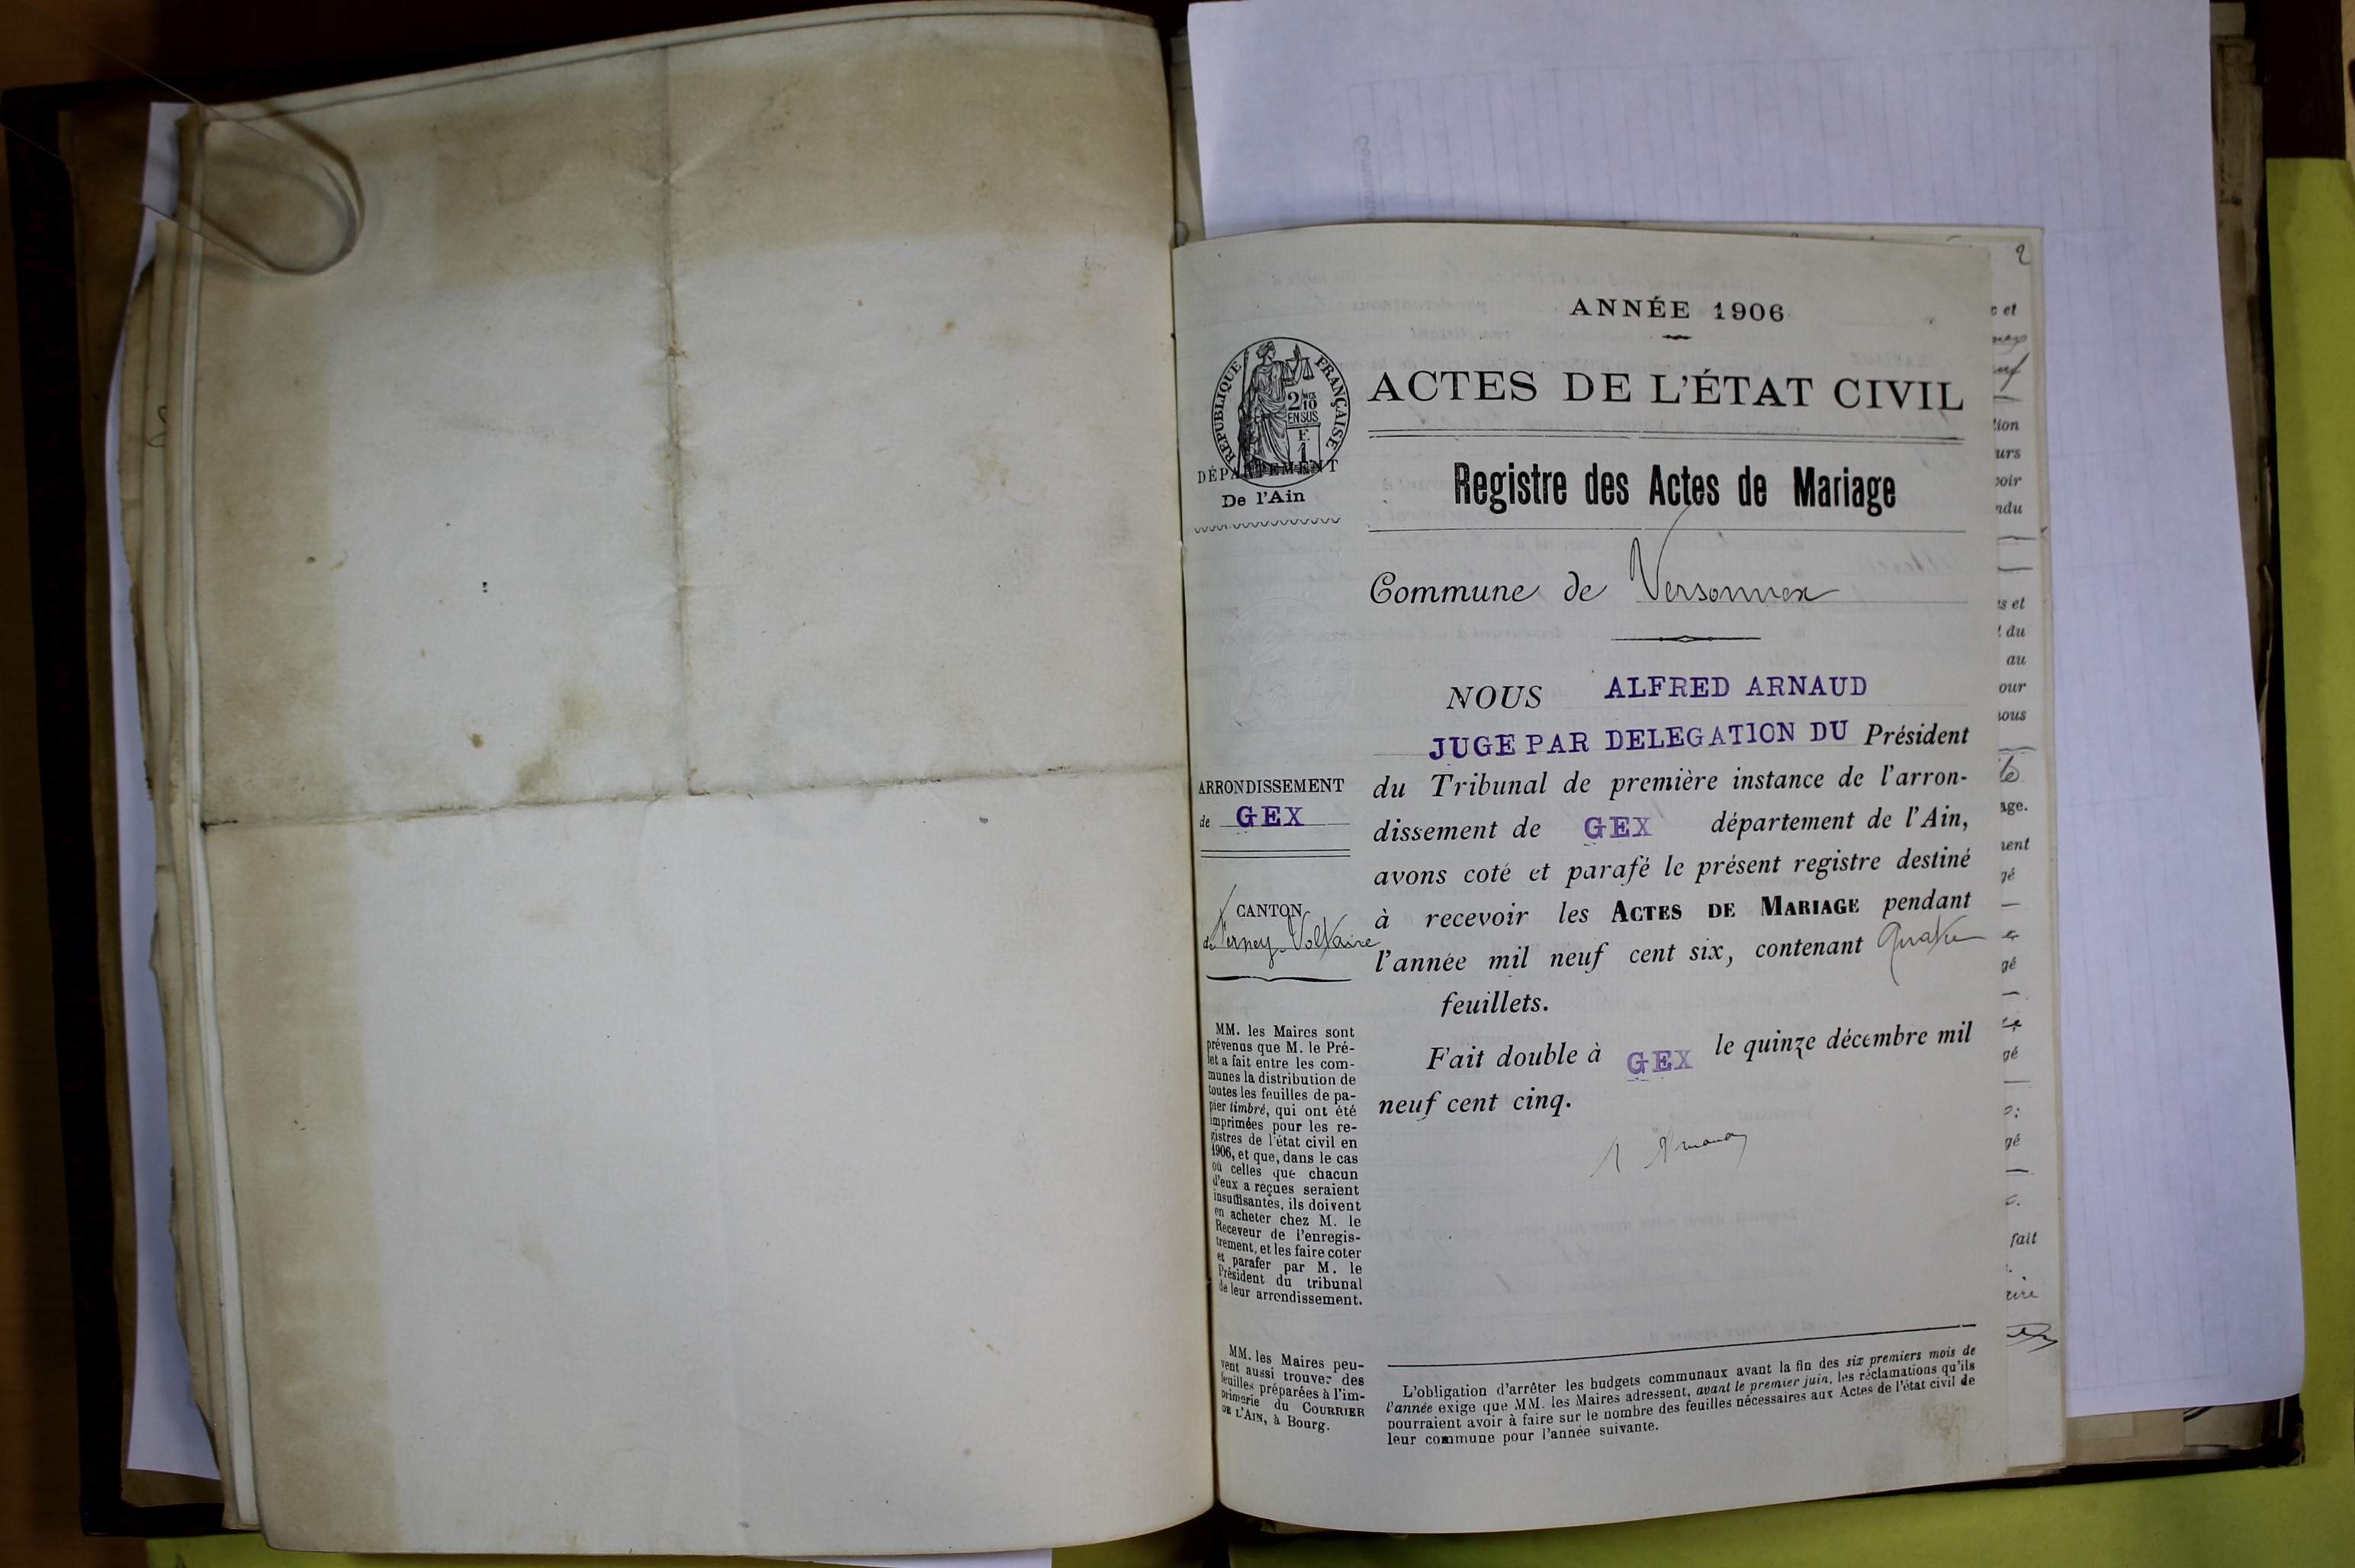 ANNÉE 1906
RÉPUBLIQUE FRANÇAISE
2/10
EN SUS
F.
1
ACTES DE L'ÉTAT CIVIL
DÉPARTEMENT
De l'Ain
Registre des Actes de Mariage
Commune de Versonnex
NOUS ALFRED ARNAUD
JUGE PAR DELEGATION DU Président
du Tribunal de première instance de l'arron-
dissement de GEX département de l'Ain,
avons coté et parafé le présent registre destiné
à recevoir les ACTES DE MARIAGE pendant
l'année mil neuf cent six, contenant Quatre
feuillets.
Fait double à GEX le quinze décembre mil
neuf cent cinq.
ARRONDISSEMENT
de GEX
CANTON
de Ferney-Voltaire
MM. les Maires sont
prévenus que M. le Pré-
fet a fait entre les com-
munes la distribution de
toutes les feuilles de pa-
pier timbré, qui ont été
imprimées pour les re-
gistres de l'état civil en
1906, et que, dans le cas
où celles que chacun
d'eux a reçues seraient
insuffisantes, ils doivent
en acheter chez M. le
Receveur de l'enregis-
trement, et les faire coter
et parafer par M. le
Président du tribunal
de leur arrondissement.
MM. les Maires peu-
vent aussi trouver des
feuilles préparées à l'im-
primerie du COURRIER
DE L'AIN, à Bourg.
L'obligation d'arrêter les budgets communaux avant la fin des six premiers mois de
l'année exige que MM. les Maires adressent, avant le premier juin, les réclamations qu'ils
pourraient avoir à faire sur le nombre des feuilles nécessaires aux Actes de l'état civil de
leur commune pour l'année suivante.
2
et
tion
urs
voir
ndu
ts et
du
au
our
nous
age.
ment
gé
gé
gé
gé
fait